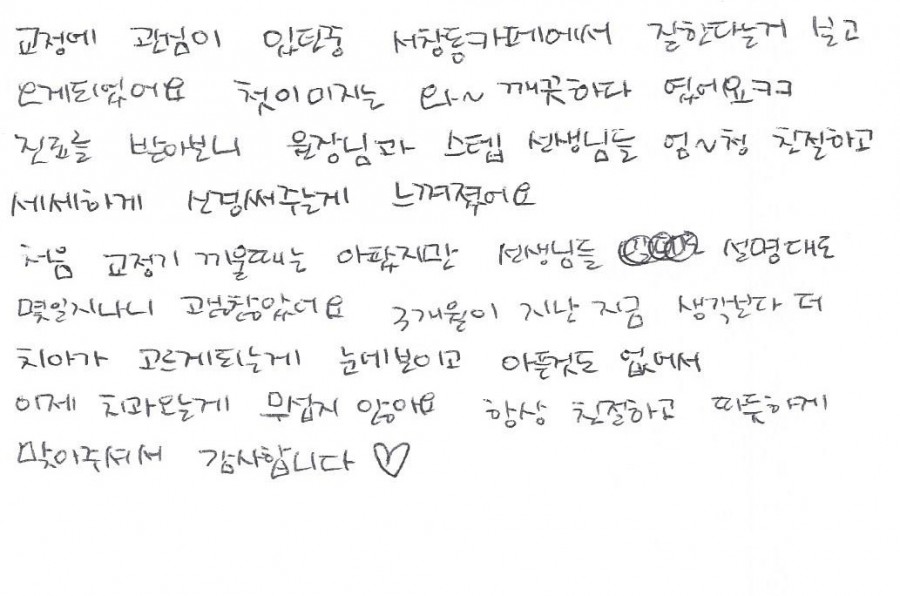 교정에 관심이 있던중 서창동카페에서 잘한다는거 보고
오게되었어요 첫이미지는 와~ 깨끗하다 였어요ㅋㅋ
진료를 받아보니 원장님과 스텝 선생님들 엄~청 친절하고
세세하게 신경써주는게 느껴졌어요
처음 교정기 끼울때는 아팠지만 선생님들 설명대로
몇일지나니 괜찮았어요 3개월이 지난 지금 생각보다 더
치아가 고르게되는게 눈에보이고 아픈것도 없어서
이제 치과오는게 무섭지 않아요 항상 친절하고 따뜻하게
맞이주셔서 감사합니다 ♡